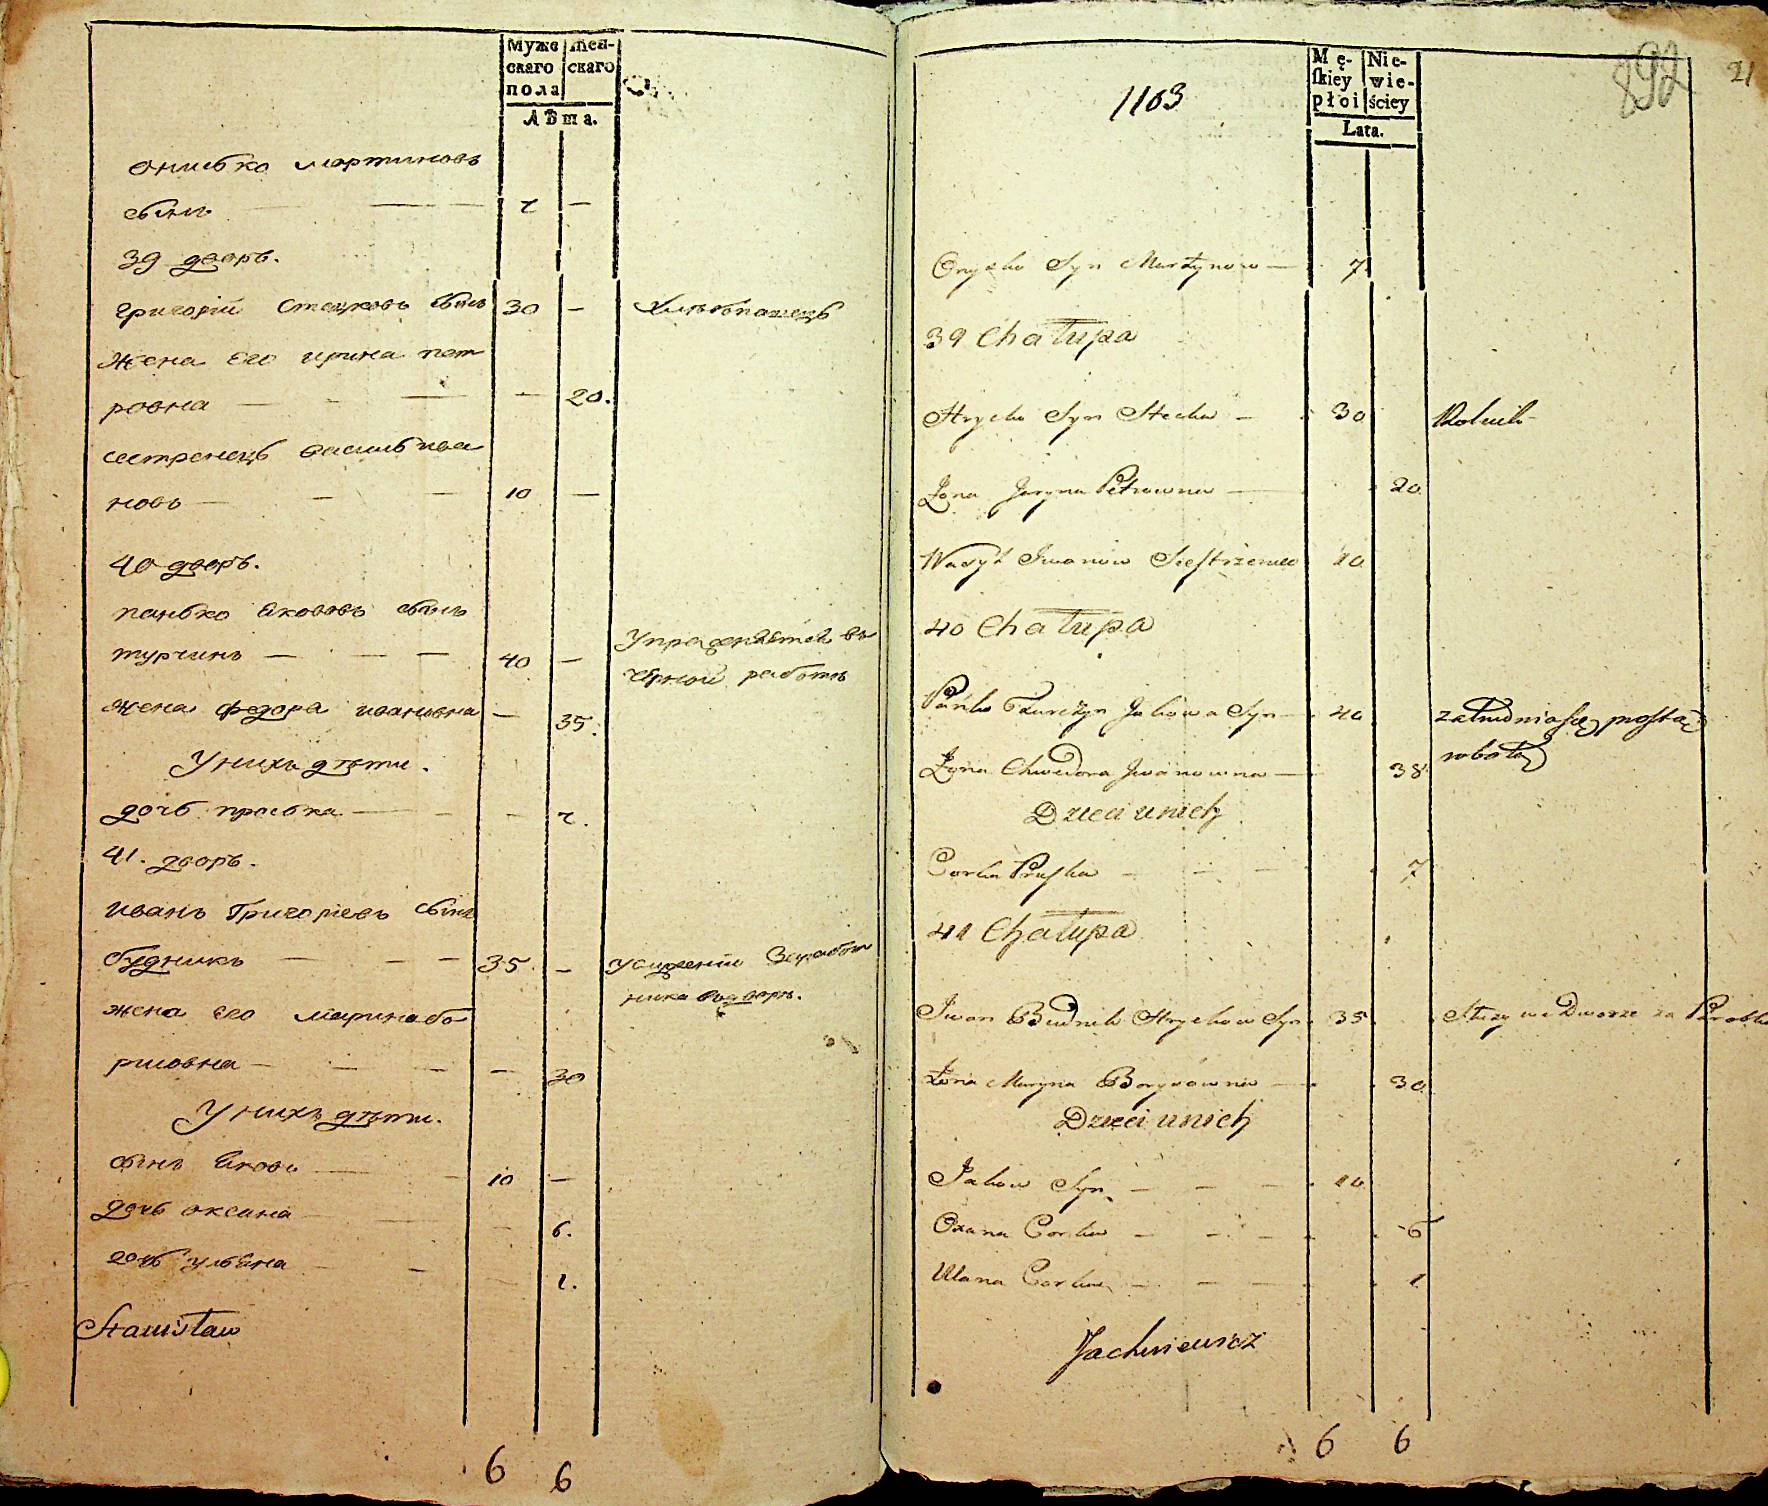 Муже
скаго
пола
Жен-
скаго
Лѣта.
онисько мартиновъ
сынъ — — 7 —
39 дворъ.
григорій стецковъ сынъ 30 — хлѣбпашецъ
жена его ирина пет
ровна — — — — 20.
сестренецъ василь ива
новъ — — — 10 —
40 дворъ.
панько яковъ сынъ
турчинъ — — — 40 — упражняется въ
чорной работѣ
жена федора ивановна — 35.
У нихъ дѣти.
дочь праска — — — 7.
41. дворъ.
иванъ григоріевъ сынъ
будникъ — — — 35. —
жена его марина бо
рисовна — — — — 30
У нихъ дѣти.
сынъ яковъ — — 10 —
дочь оксана — — 6.
дочь ульяна — — 1.
Stanisław
6 6
892
21
1103
Mę-
skiey
płci
Nie-
wie-
ściey
Lata.
Onyśko Syn Martynow — 7
39 Chałupa
Hrycko Syn Stecka — 30 Rolnik
Żona Jaryna Petrowna — 20
Wasyl Iwanow Siestrzeniec 10
40 Chałupa
Pańko Turczyn Jakowa Syn — 40 zatrudnia się prostą
robotą
Żona Chwedora Iwanowna — 38
Dzieci u nich
Corka Praska — — — 7
41 Chałupa
Iwan Budnik Hryckow Syn 35 Służy we Dworze za Parobka
Żona Maryna Borysowna — 30
Dzieci u nich
Jakow Syn — — — 10
Oxana Corka — — — 6
Ulana Corka — — — 1
Jachniewicz
6 6